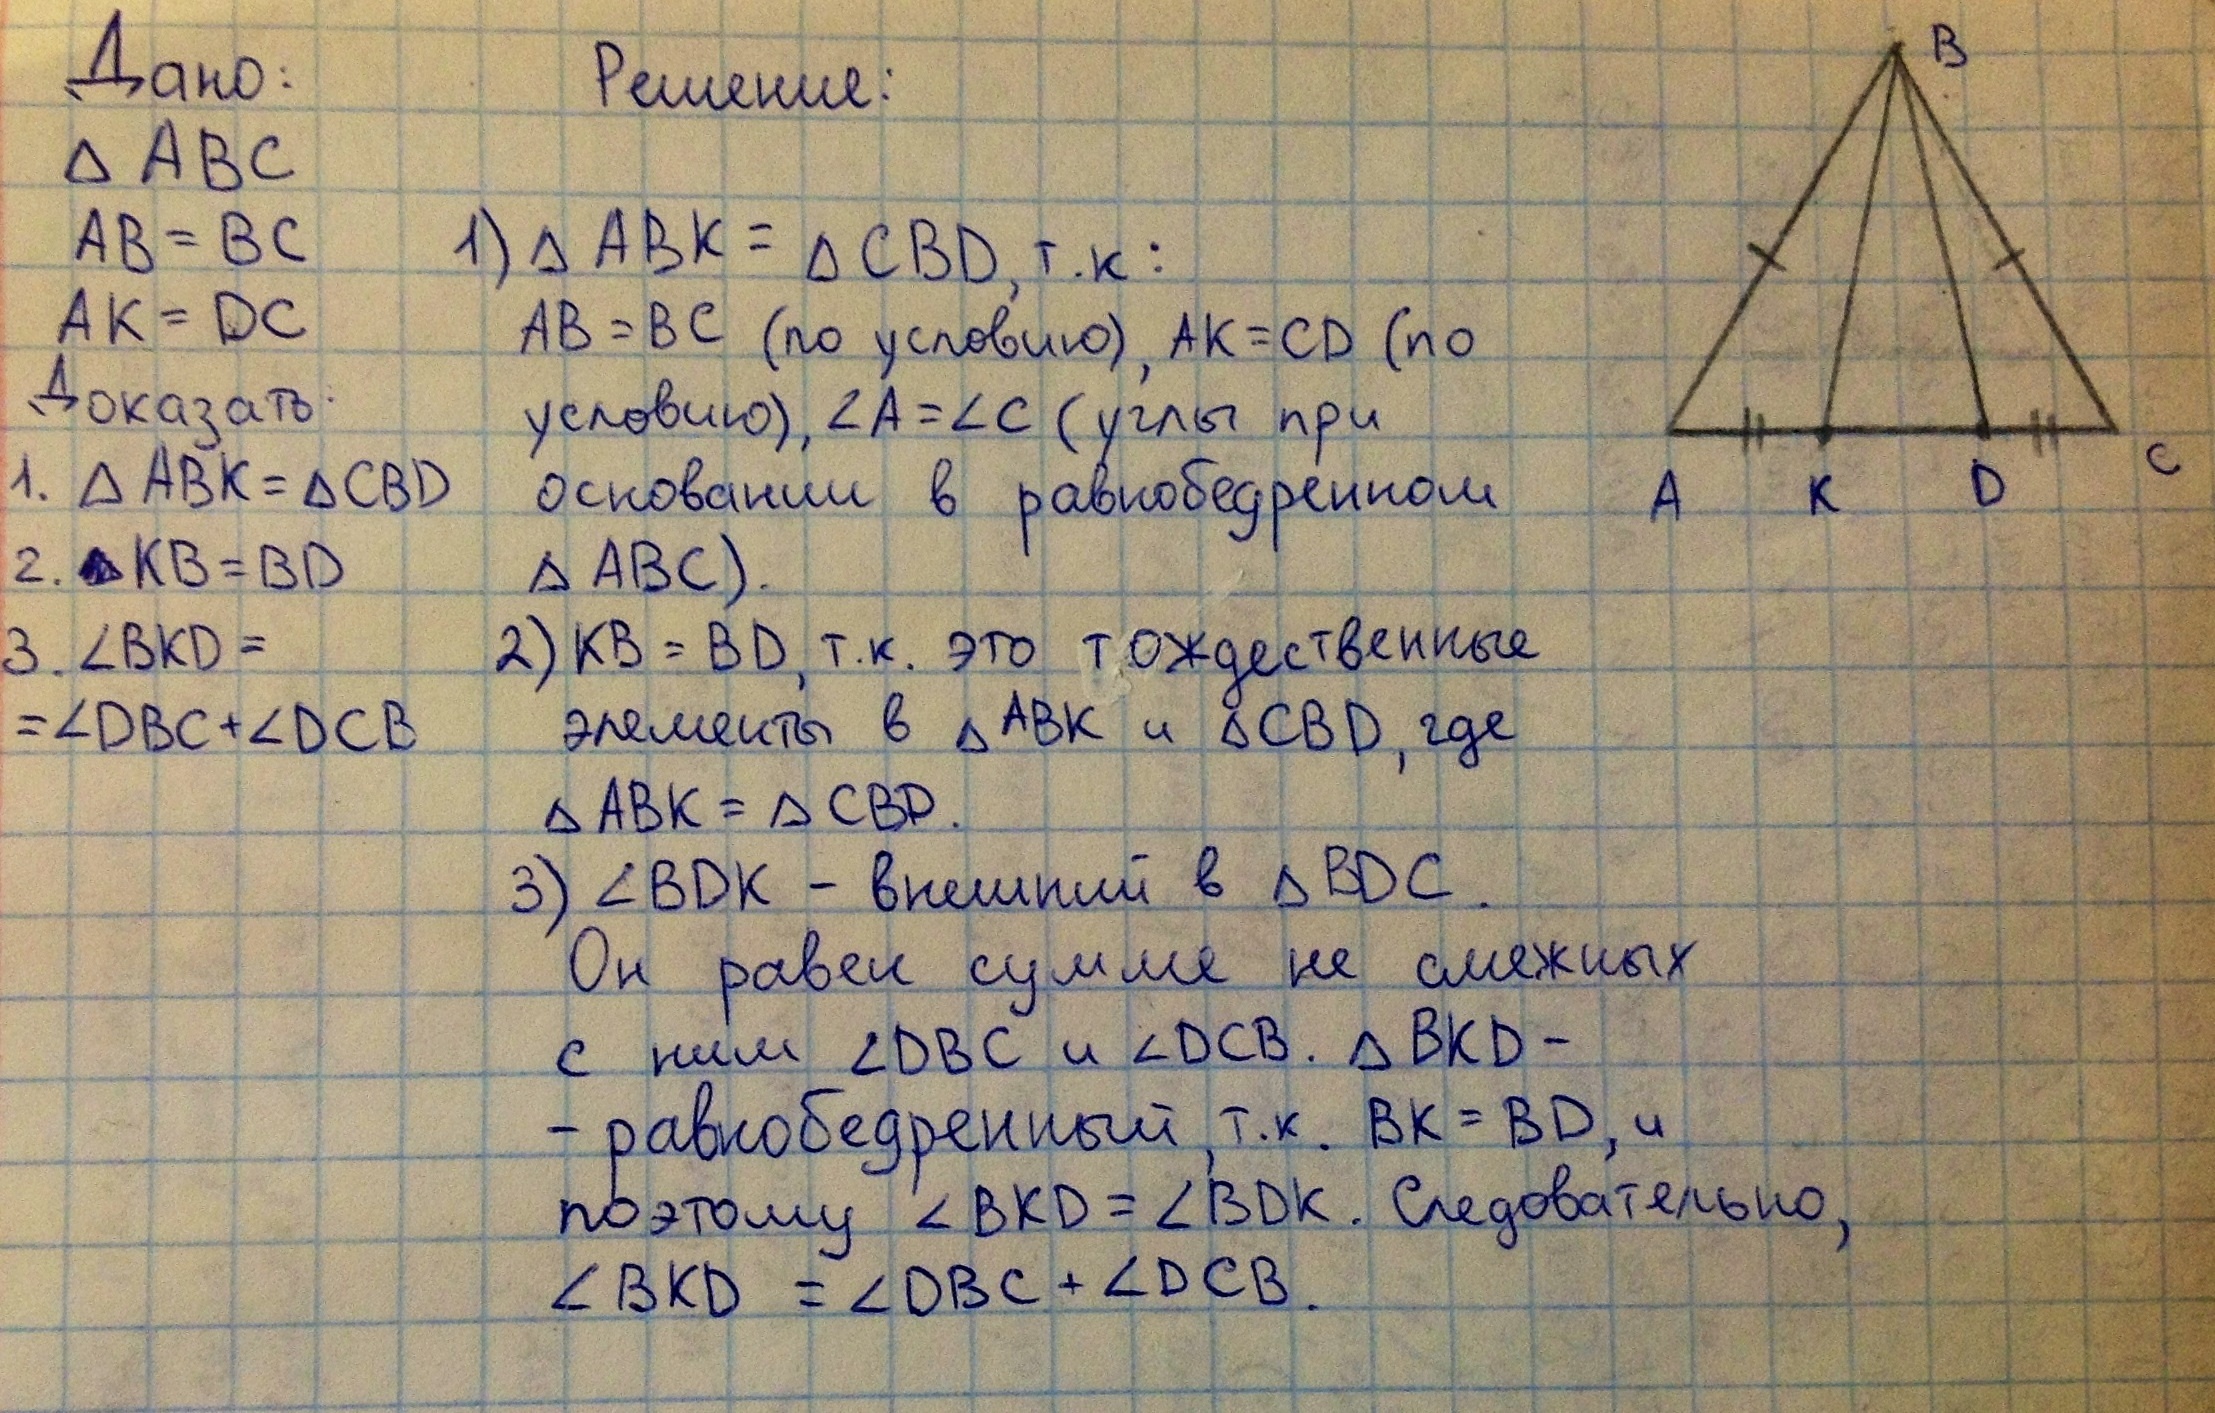 Дано:
△ ABC
AB = BC
AK = DC
Доказать:
1. △ ABK = △ CBD
2. KB = BD
3. ∠BKD =
= ∠DBC + ∠DCB
Решение:
1) △ ABK = △ CBD, т.к:
AB = BC (по условию), AK = CD (по
условию), ∠A = ∠C (углы при
основании в равнобедренном
△ ABC).
2) KB = BD, т.к. это тождественные
элементы в △ ABK и △ CBD, где
△ ABK = △ CBD.
3) ∠BDK - внешний в △ BDC.
Он равен сумме не смежных
с ним ∠DBC и ∠DCB. △ BKD -
- равнобедренный, т.к. BK = BD, и
поэтому ∠BKD = ∠BDK. Следовательно,
∠BKD = ∠DBC + ∠DCB.
B
A K D C